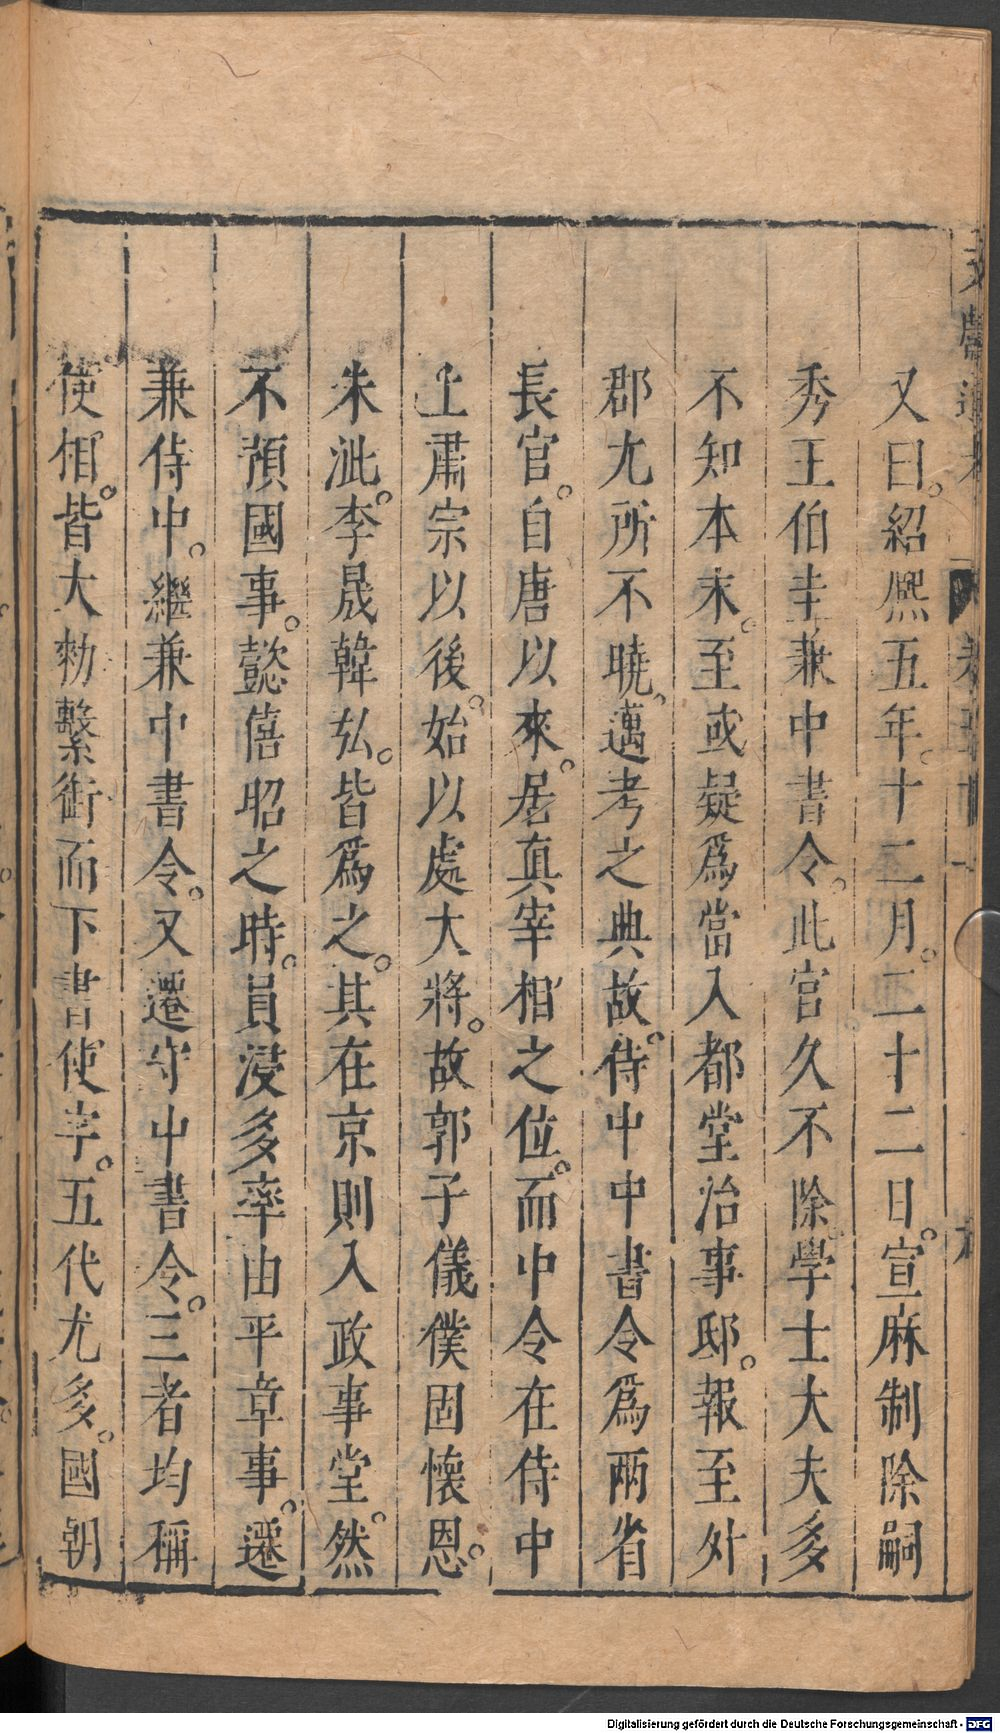 又曰。紹熈五年。十二月。二十二日。宣麻制除嗣
秀王伯圭兼中書令。此官久不除。學士大夫多
不知本末。至或疑爲當入都堂治事邸。報至外
郡尢所不曉。邁考之典故。侍中中書令爲兩省
長官。自唐以來。居真宰相之位。而中令在侍中
上肅宗以後。始以處大將。故郭子儀僕固懷恩。
朱泚。李晟韓弘。皆爲之。其在京則入政事堂。然
不預國事。懿僖昭之時。員浸多率由平章事。遷
兼侍中。繼兼中書令。又遷守中書令。三者均稱
使相。皆大勑繫銜而下書使字。五代尤多。國朝
Digitalisierung gefördert durch die Deutsche Forschungsgemeinschaft - DFG